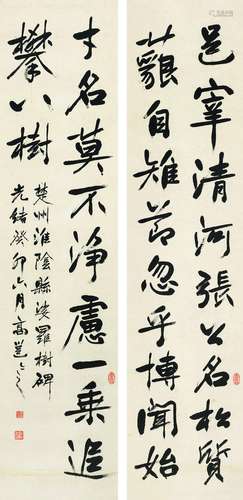 邑宰清河張公名松質
藐自雉節忽乎博聞始
才名莫不淨慮一乘追
攀八樹
楚州淮陰縣娑羅樹碑
光緒癸卯六月高邕之